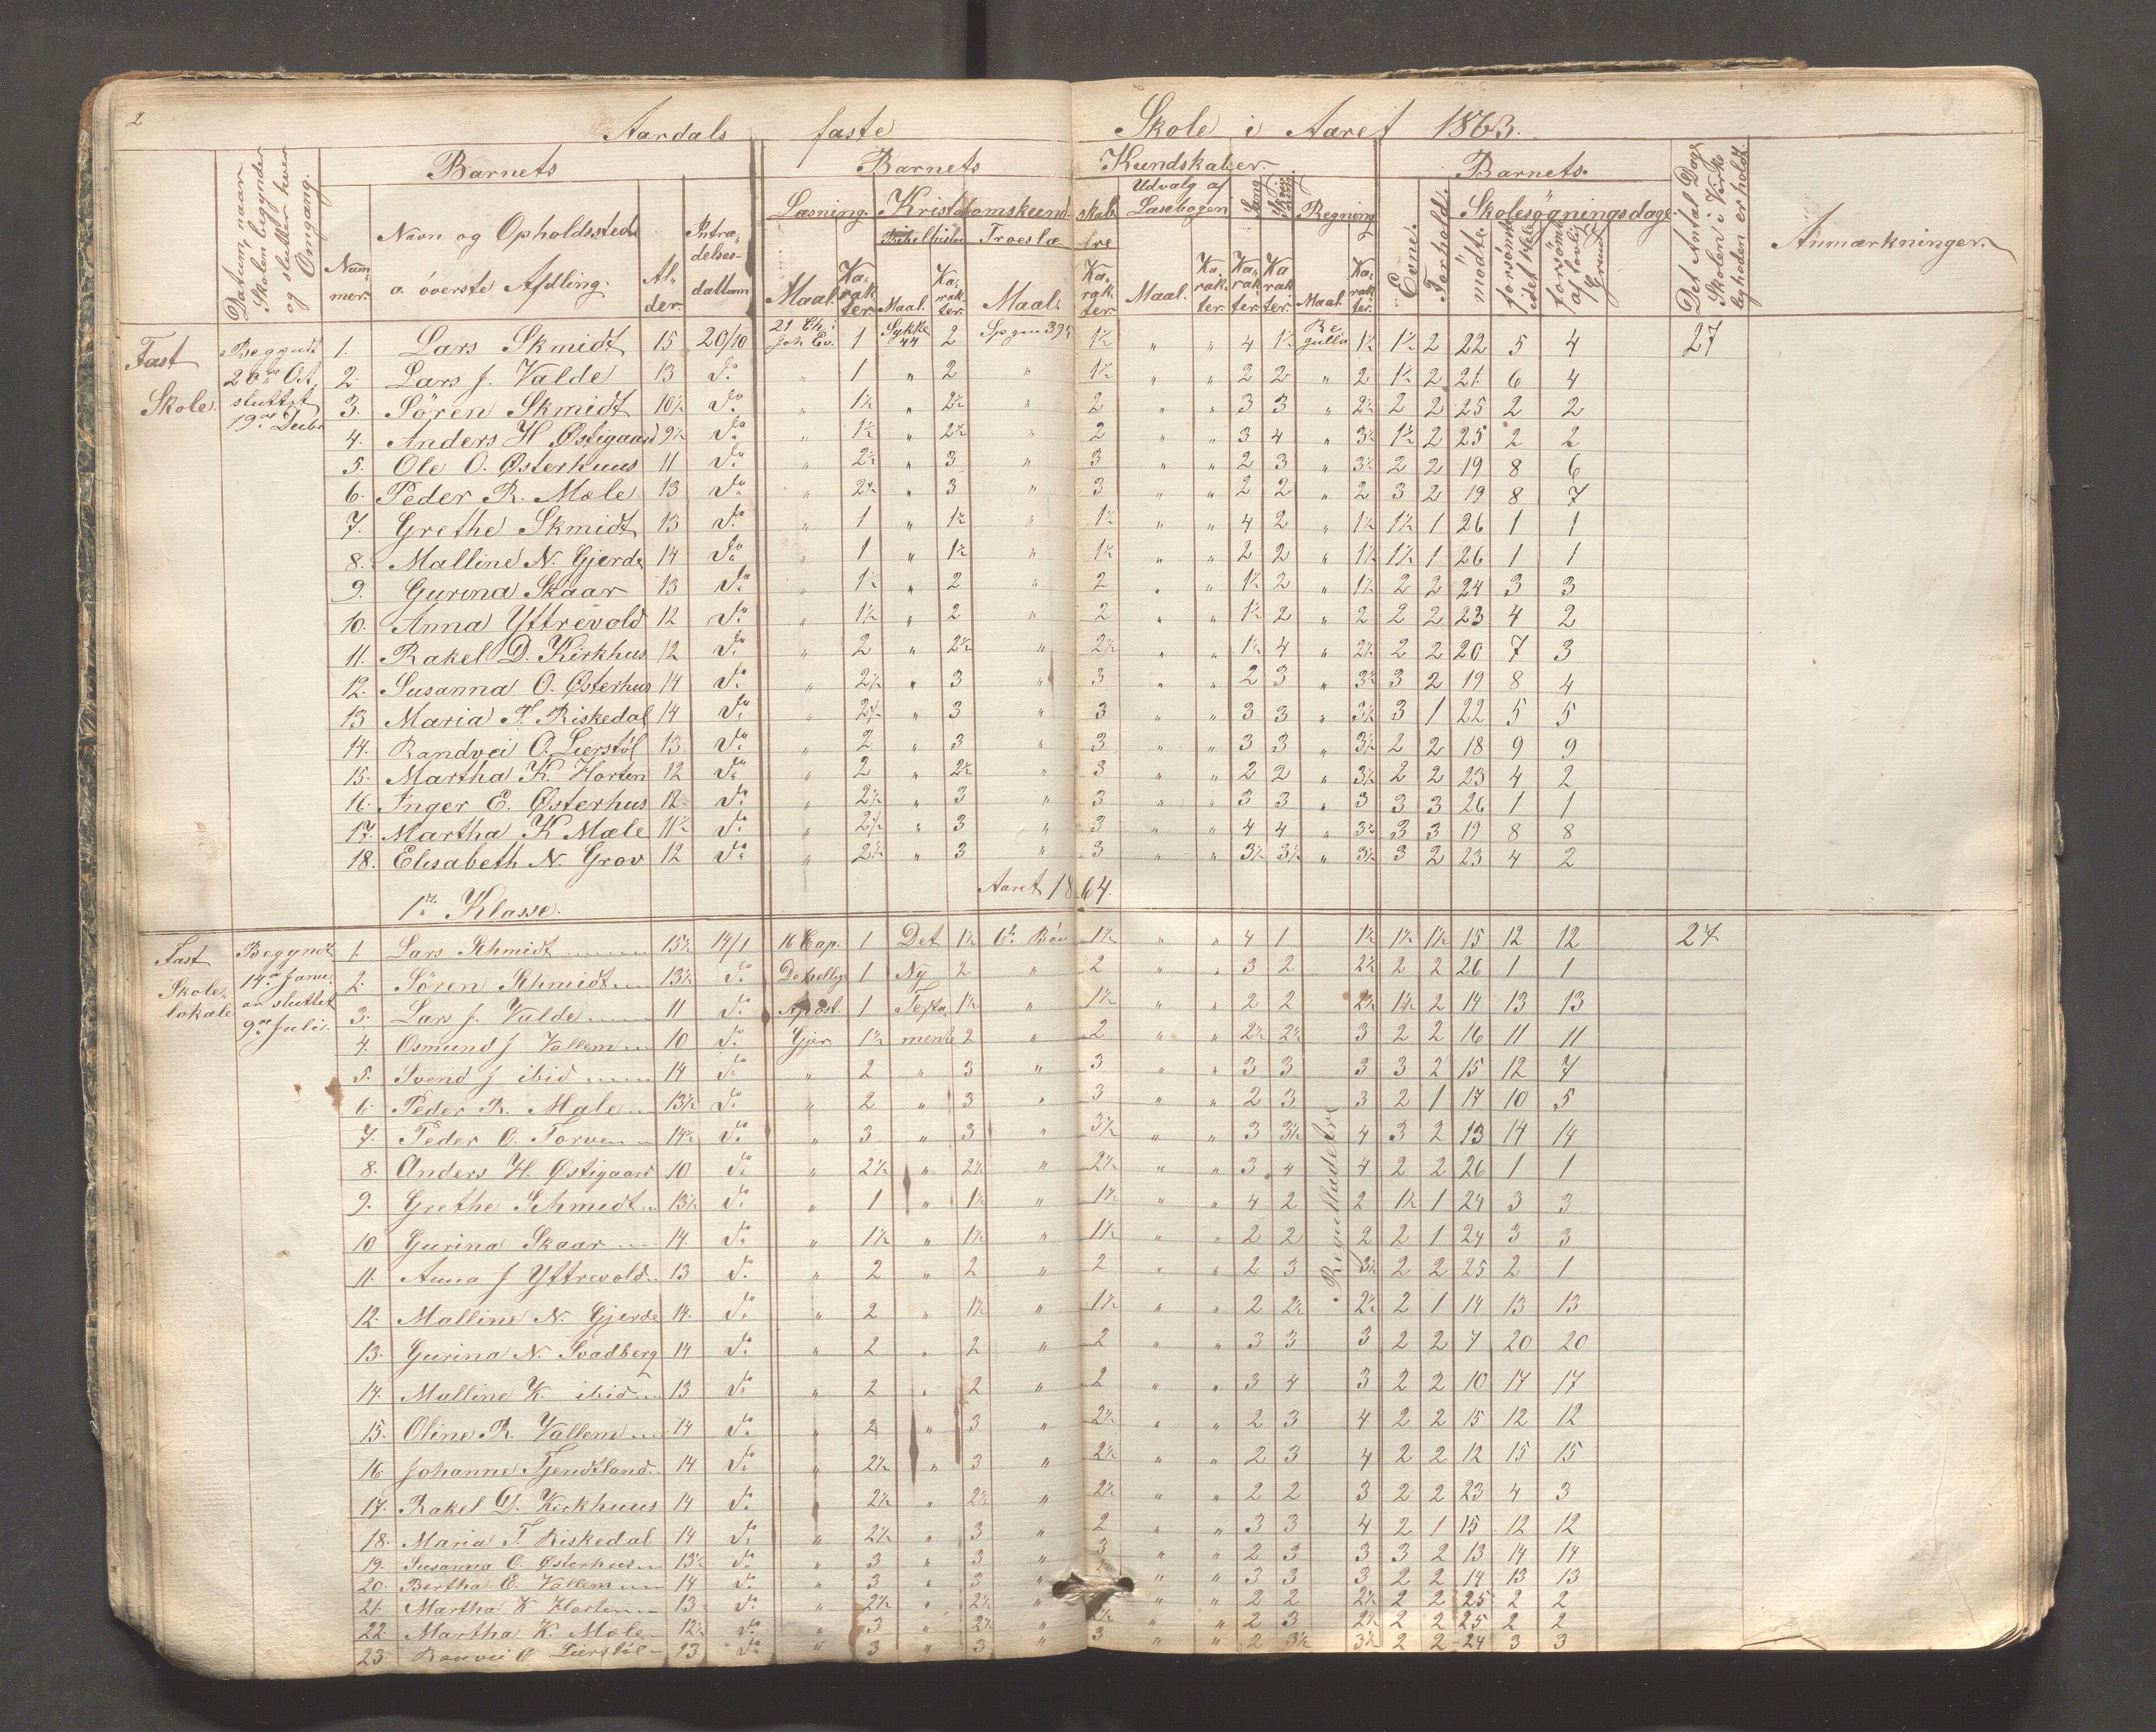 2
Aardals faste Skole i Aaret 1863.
Datum, naar Skolen begynder og slutter hver Omgang.
Barnets
Barnets Kundskaber.
Barnets.
Det Antal Dage Skolen i Virkeligheden er holdt.
Anmærkninger.
Nummer.
Navn og Opholdssted
a. överste Afdling.
Alder.
Intrædelses-dattum
Læsning. Kristdomskundskab
Udvalg af Læsebogen
Sang
Regning
Evne.
Forhold.
Skolesögningsdage.
Troeslære
Maal. Karakter. Maal. Karakter. Maal. Karakter. Maal. Karakter. Karakter. Karakter. Maal. Karakter.
mödte. forsömte i det Hele. forsömte af lovlig Grund
Fast Skole.
Begyndt 20de Oct. sluttet 19de Decbr
1. Lars Skmidt 15 20/10 21 Ch: Joh Ev. 1 Stykke 44 2 1½ " " 4 1½ Regulla 1½ 1½ 2 22 5 4 27
2. Lars J. Valde 13 do " 1 " 2 " 1½ " " 2 2 " 2 1½ 2 21 6 4
3. Sören Skmidt 10½ do " 1½ " 2½ " 2 " " 3 3 " 2½ 2 2 25 2 2
4. Anders H Østigaard 9½ do " 1½ " 2½ " 2 " " 3 4 " 3½ 1½ 2 25 2 2
5. Ole O. Østerhuus 11 do " 2½ " 3 " 3 " " 2 3 " 3½ 2 2 19 8 6
6. Peder R. Mæle 13 do " 2½ " 3 " 3 " " 2 2 " 2 3 2 19 8 7
7. Grethe Skmidt 13 do " 1 " 1½ " 1½ " " 4 2 " 1½ 1½ 1 26 1 1
8. Malline N. Gjerde 14 do " 1 " 1½ " 1½ " " 2 2 " 1½ 1½ 1 26 1 1
9. Gurina Skaar 13 do " 1½ " 2 " 2 " " 1½ 2 " 1½ 2 2 24 3 3
10. Anna Yttrevold 12 do " 1½ " 2 " 2 " " 1½ 2 " 2 2 2 23 4 2
11. Rakel D. Kirkhus 12 do " 2 " 2½ " 2½ " " 1½ 4 " 2½ 2 2 20 7 3
12. Susanna O. Østerhus 14 do " 2½ " 3 " 3 " " 2 3 " 3½ 3 2 19 8 4
13 Maria T. Riskedal 14 do " 2½ " 3 " 3 " " 3 3 " 3½ 3 1 22 5 5
14. Randvei O. Lierstöl 13 do " 2 " 3 " 3 " " 3 3 " 3½ 2 2 18 9 9
15. Martha K. Horten 12 do " 2 " 2½ " 3 " " 2 2 " 3½ 2 2 23 4 2
16. Inger E. Østerhus 12 do " 2½ " 3 " 3 " " 3 3 " 3 3 3 26 1 1
17. Martha K Mæle 11½ do " 2½ " 3 " 3 " " 4 4 " 3½ 3 3 19 8 8
18. Elisabeth N. Grov 12 do " 2½ " 3 " 3 " " 3½ 3½ " 3½ 3 2 23 4 2
Aaret 1864.
1ste Klasse.
Fast Skolelokale
Begyndt 14de Januar sluttet 9de Juli.
1. Lars Schmidt 15½ 14/1 16 Cap. 1 Det 1½ 6te Bön 1½ " " 4 1 1½ 1½ 1½ 15 12 12 27
2. Sören Schmidt 13½ do De hellige 1 Ny 2 " 2 " " 3 2 2½ 2 2 26 1 1
3. Lars J. Valde 11 do Apost. 1 Testa- 1½ " 1½ " " 2 2 2½ 1½ 2 14 13 13
4. Osmund J Vallem 10 do Gjer. 1½ mente 2 " 2 " " 2½ 2½ 3 2 2 16 11 11
5. Svend J ibid 14 do " 2 " 3 " 3 " " 3 3 3 3 2 15 12 7
6. Peder R. Male 13½ do " 2 " 3 " 3 " " 2 3 3 2 1 17 10 5
7. Peder O. Torven 14½ do " 3 " 3 " 3½ " " 3 3½ 4 3 2 13 14 14
8. Anders H. Østigaard 10 do " 2½ " 2½ " 2½ " " 3 4 4 2 2 26 1 1
9. Grethe Schmidt 13½ do " 1 " 1½ " 1½ " " 4 2 2 1½ 1 24 3 3
10 Gurina Skaar 14 do " 1½ " 1½ " 1½ " " 2 2 2 2 1 24 3 3
11. Anna J Yttrevold 13 do " 2 " 2 " 2 " " 2 3 3½ 2 2 25 2 1
12. Malline N. Gjerde 14. do " 2 " 1½ " 1½ " " 2 2½ 2½ 2 1 14 13 13
13. Gurina N. Svadberg 14 do " 2 " 2 " 2 " " 3 3 3 2 2 7 20 20
14. Malline K. ibid 13 do " 2 " 2 " 2 " " 3 4 3 2 2 10 17 17
15. Oline R. Vallem 14 do " 2 " 3 " 2½ " " 2 3 4 2 2 15 12 12
16 Johanne Tjendtland 14 do " 2½ " 3 " 2½ " " 2 3 4 2 2 12 15 15
17. Rakel D. Kirkhuus 14 do " 2½ " 2½ " 2½ " " 2 2 3 2 2 23 4 3
18. Maria T. Riskedal 14 do " 2½ " 3 " 2 " " 3 3 4 2 1 15 12 12
19. Susanna O. Østerhus 13½ do " 3 " 3 " 3 " " 2 3 3 3 2 13 14 14
20. Bertha E. Vallem 14 do " 3 " 3 " " " 3 3 3 2 2 14 13 13
21. Martha K Horten 13 do " 2½ " 2½ " " " 2 2 2½ 2 2 25 2 2
22. Martha K. Mæle 12½ do " 3 " 2½ " 2½ " " 2 3 2½ 2 2 25 2 2
23 Ranvei O Lierstöl 13 do " 3 " 3 " 3 " " 2 3½ 3½ 2 2 24 3 3
Regulladetre